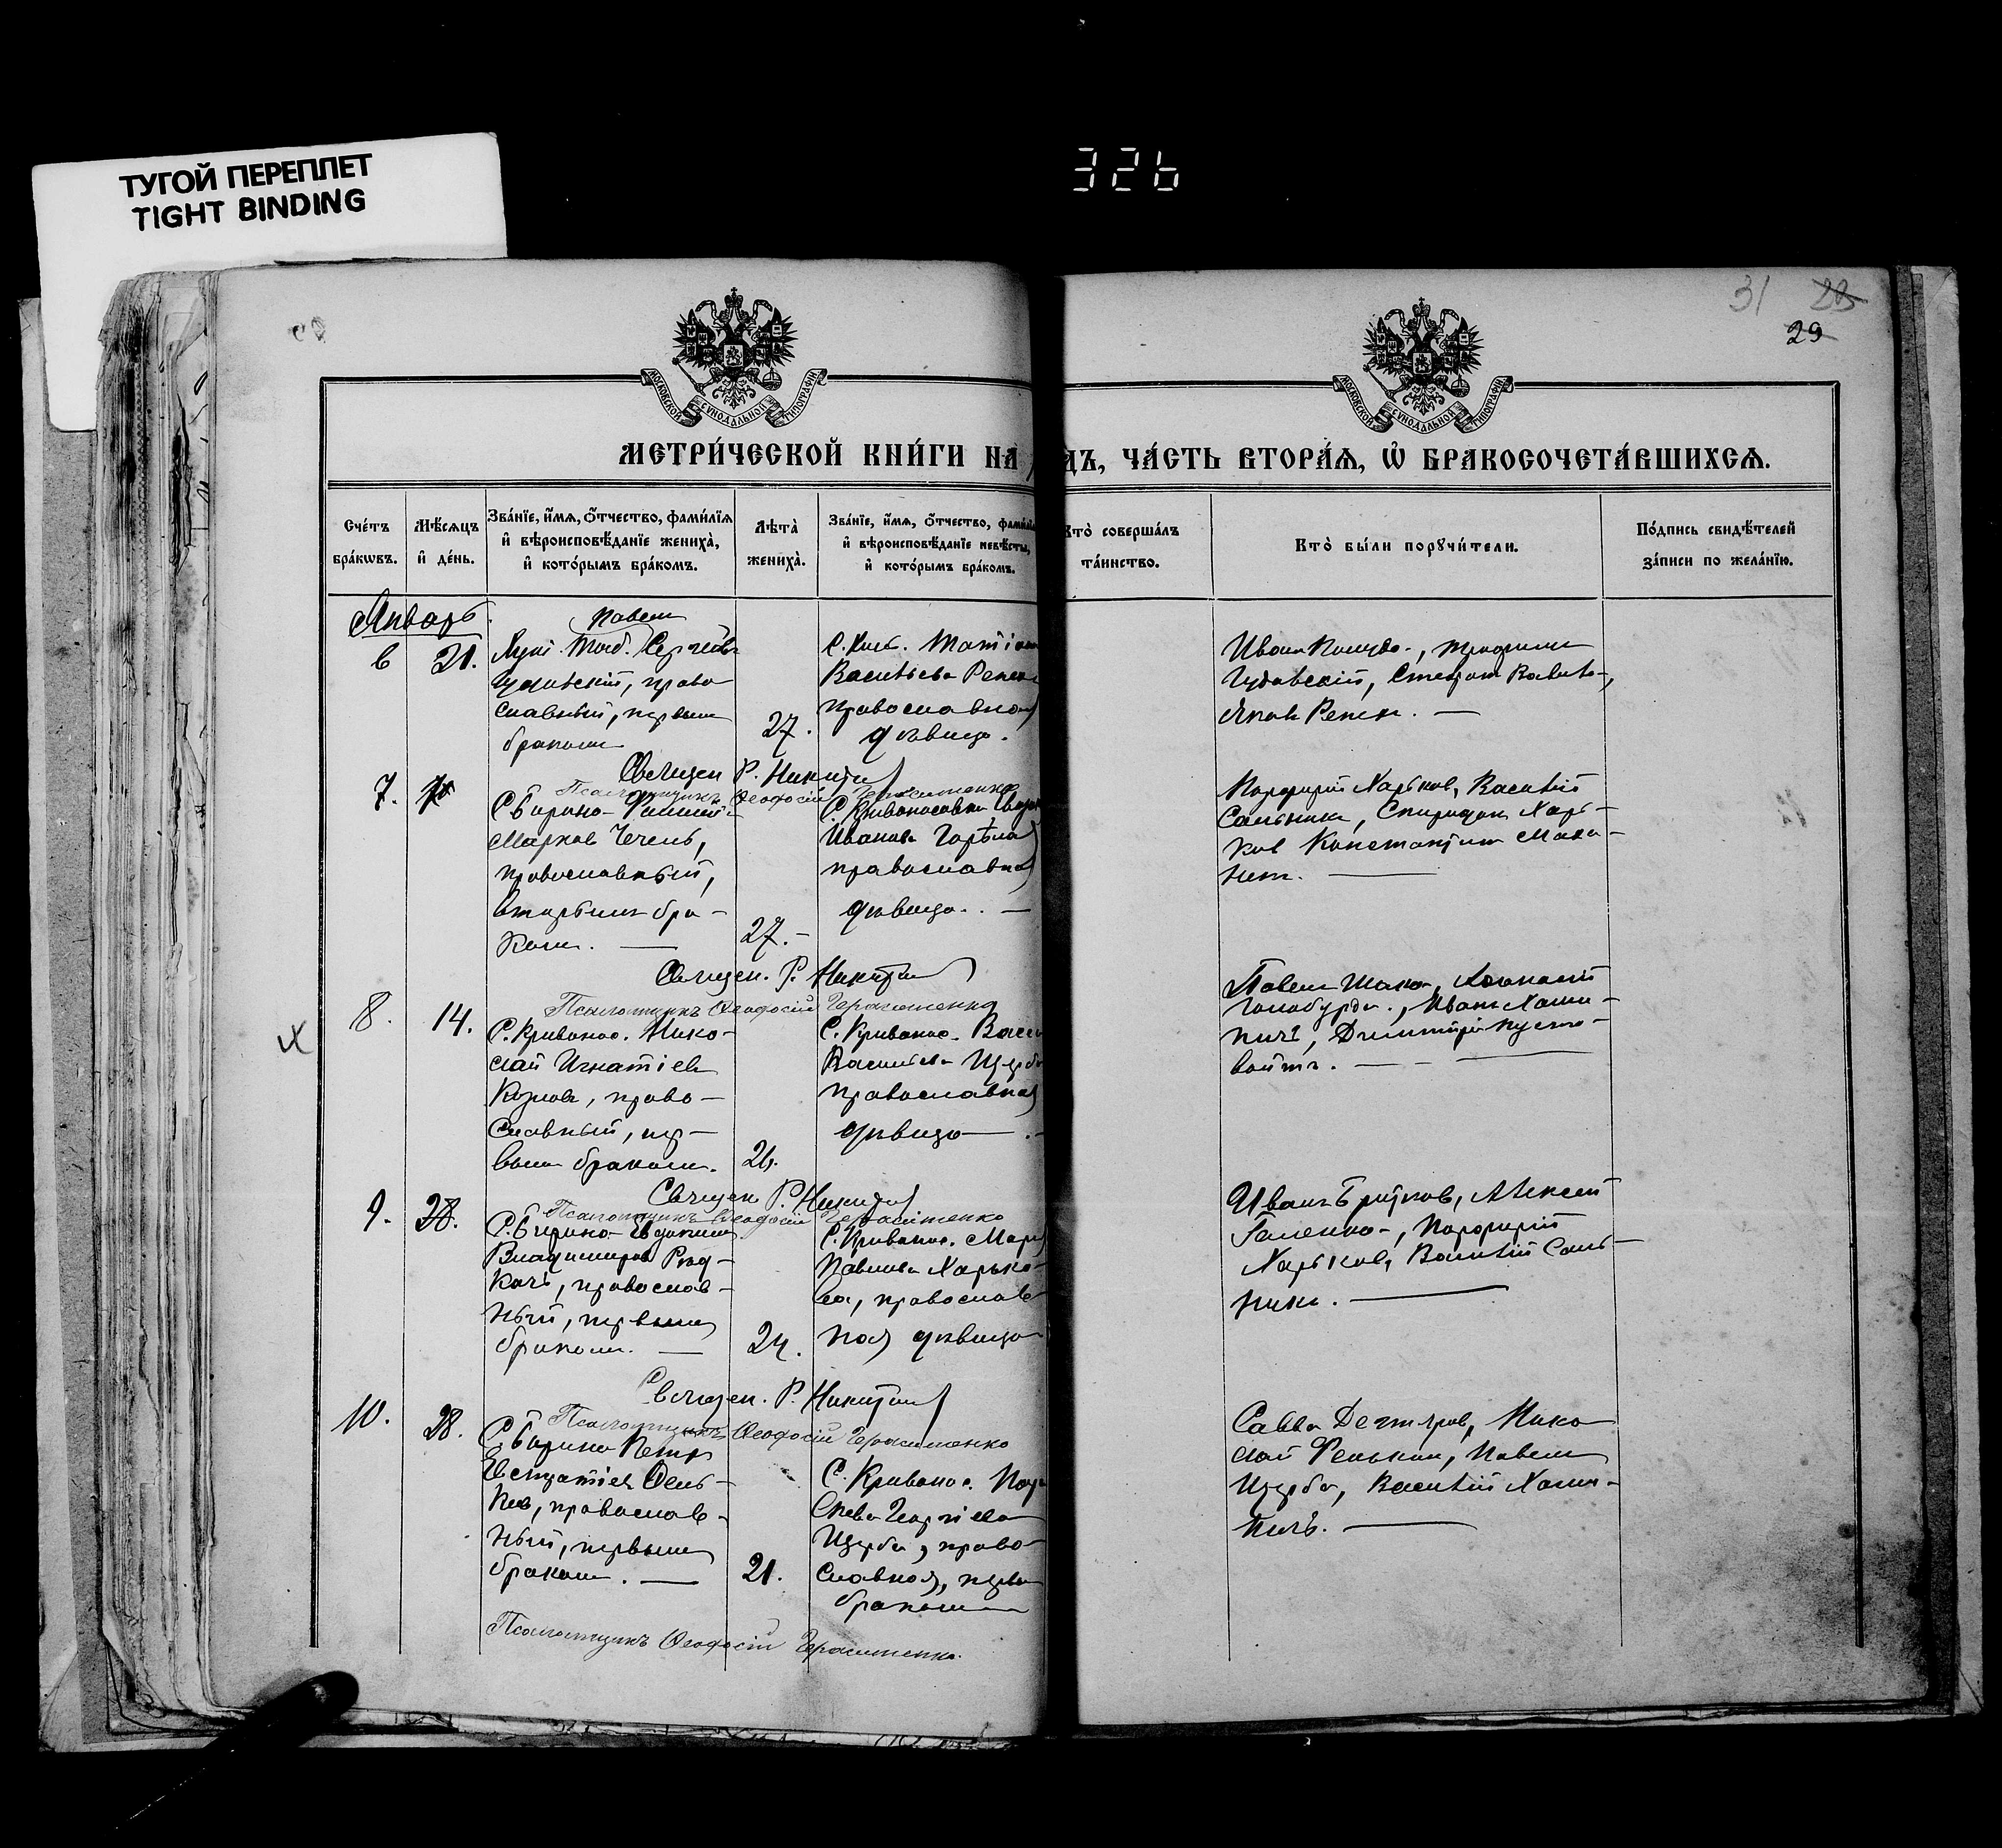 ТУГОЙ ПЕРЕПЛЕТ
TIGHT BINDING
326
31 28
29
МОСКОВСКОЙ СѴНОДАЛЬНОЙ ТИПОГРАФІИ
МОСКОВСКОЙ СѴНОДАЛЬНОЙ ТИПОГРАФІИ
МЕТРИ́ЧЕСКОЙ КНИ́ГИ НА
ДЪ, ЧА́СТЬ ВТОРА́Я, Ѡ҆ БРАКОСОЧЕТА́ВШИХСЯ.
Сче́тъ бра́кѡвъ.
Мѣ́сяцъ и҆ де́нь.
Зва́нїе, и҆́мя, ѻ҆́тчество, фами́лїя
и҆ вѣроисповѣ́данїе жениха̀,
и҆ кото́рымъ бра́комъ.
Лѣта̀ жениха̀.
Зва́нїе, и҆́мя, ѻ҆́тчество, фами́лїя
и҆ вѣроисповѣ́данїе невѣ́сты,
и҆ кото́рымъ бра́комъ.
Кто̀ соверша́лъ
та́инство.
Кто̀ бы́ли порꙋчи́тели.
По́дпись свидѣ́телей
за́писи по жела́нїю.
Январь
6 21.
Павел
православный, первым
браком
27.
С. Матіа
Васильева Репе
православная
дѣвица.
Иван
Чудовскій, Стефан
Яков Репех. —
Священ Р. Никитин
Псаломщикъ Ѳеодосій Герасименко
7.
С. Бирино-
Марков Чечель,
православный,
вторым бра-
ком. —
27. -
С. Кривоносовка
Иванова Горѣла
православная
дѣвица. . —
Порфирій Харьков, Василій
Сальник, Спиридон Харь-
ков Константин Мака-
нет. —
Священ. Р. Никитин
Псаломщикъ Ѳеодосій Герасименко
8. 14.
С. Кривонос. Нико-
лай Игнатіев
Козлов, право-
славный, пер-
вым браком.
26.
С. Кривонос. Васи
Васильева Щерба
православная
дѣвица — . -
Павел
Голобурда., Иван Хами-
нич, Димитрій Пусто-
войт. — - —
Священ Р. Никитин
Псаломщикъ Ѳеодосій Герасименко
9. 28.
С. Бирино- Евдоким
Владимиров Рад-
кач, православ-
ный, первым
браком. —
24.
С. Кривонос. Мари
Павлова Харько-
ва, православ
ная дѣвица
Иван Бритков, Алексей
Галенко-, Порфирій
Харьков, Василій Саль-
ник. —
Священ. Р. Никитин
Псаломщикъ Ѳеодосій Герасименко
10. 28.
С. Бирино Петр
православ-
ный, первым
браком. —
21.
С. Кривонос. Пара
скева Георгіева
Щерба, право-
славная, первым
браком
Савва Дегтярев, Нико
лай Фенькин, Павел
Щерба, Василій Хами-
нич. —
Псаломщикъ Ѳеодосій Герасименко.